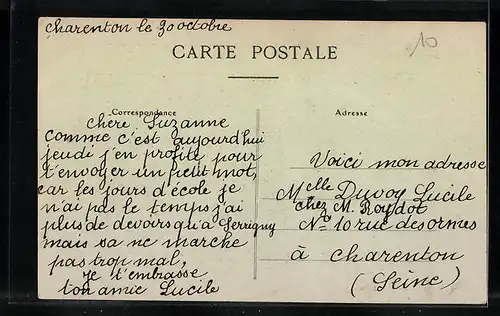 Charenton le 30 octobre
10
CARTE POSTALE
Correspondance
Adresse
Chère Suzanne
Comme c'est aujourd'hui
jeudi j'en profite pour
t'envoyer un petit mot,
car les jours d'école je
n'ai pas le temps j'ai
plus de devoirs qu'a Serrigny
mais sa ne marche
pas trop mal,
Je t'embrasse
ton amie Lucile
Voici mon adresse
Melle Duvoy Lucile
chez M. Roydot
No 10 rue des ormes
à Charenton
(Seine)